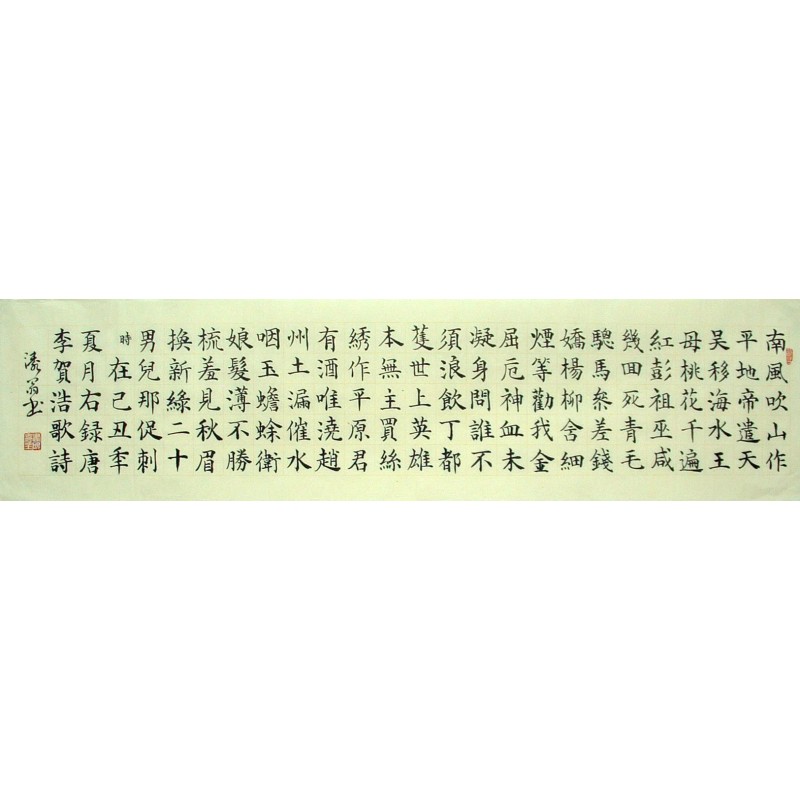 南風吹山作
平地帝遣天
吴移海水王
母桃花千遍
紅彭祖巫咸
幾回死青毛
驄馬叅差錢
嬌楊柳含細
煙筝勸我金
屈卮神血未
凝身問誰不
須浪飲丁都
護世上英雄
本無主買絲
綉作平原君
有酒唯澆趙
州土漏催水
咽玉蟾蜍衛
娘髮薄不勝
梳羞見秋眉
換新綠二十
男兒那促刺
時在己丑秊
夏月右録唐
李賀浩歌詩
翁书